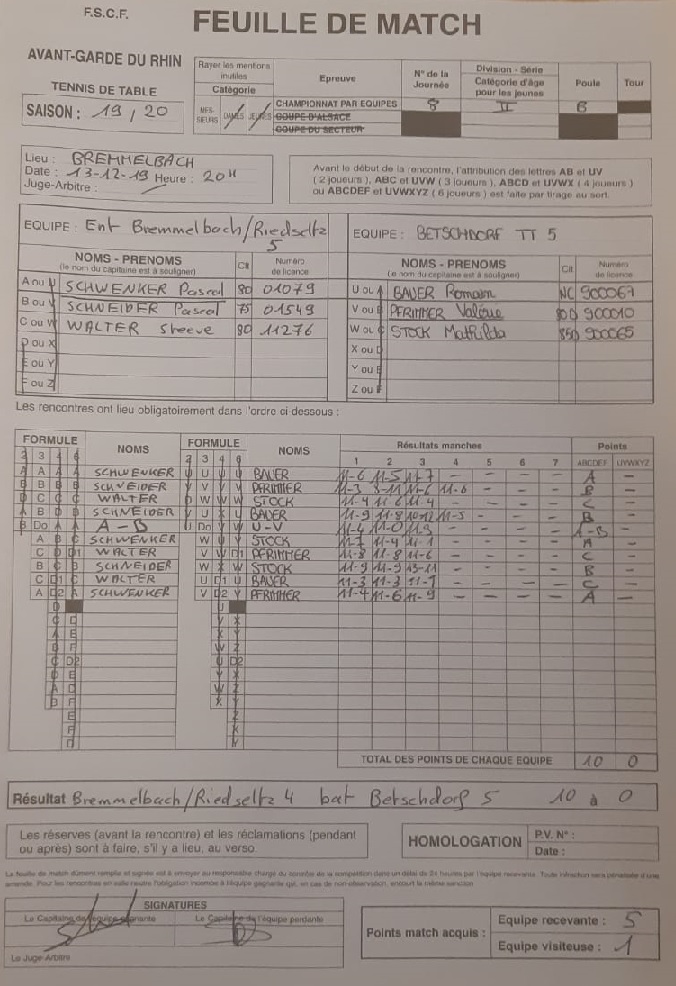 F.S.C.F.
FEUILLE DE MATCH
AVANT-GARDE DU RHIN
TENNIS DE TABLE
SAISON : 19 / 20
Rayer les mentions inutiles
Catégorie
Epreuve
N° de la Journée
Division - Série
Catégorie d'âge pour les jeunes
Poule
Tour
MES-SIEURS DAMES JEUNES
CHAMPIONNAT PAR EQUIPES 8 II B
COUPE D'ALSACE
COUPE DU SECTEUR
Lieu : BREMMELBACH
Date : 13-12-19 Heure : 20H
Juge-Arbitre :
Avant le début de la rencontre, l'attribution des lettres AB et UV
( 2 joueurs ), ABC et UVW ( 3 joueurs ), ABCD et UVWX ( 4 joueurs )
ou ABCDEF et UVWXYZ ( 6 joueurs ) est faite par tirage au sort.
EQUIPE : Ent Bremmelbach/Riedseltz 5
NOMS - PRENOMS
(le nom du capitaine est à souligner)
Clt
Numéro de licence
A ou U SCHWENKER Pascal 80 01079
B ou V SCHNEIDER Pascal 75 01549
C ou W WALTER Steeve 80 11276
D ou X
E ou Y
F ou Z
EQUIPE : BETSCHDORF TT 5
NOMS - PRENOMS
(Le nom du capitaine est à souligner)
Clt
Numéro de licence
U ou A BAUER Romain NC 900067
V ou B PFRIMMER Valérie 80D 900010
W ou C STOCK Mathilda 85D 900065
X ou D
Y ou E
Z ou F
Les rencontres ont lieu obligatoirement dans l'ordre ci-dessous :
FORMULE NOMS FORMULE NOMS Résultats manches Points
2 3 4 6 2 3 4 6 1 2 3 4 5 6 7 ABCDEF UVWXYZ
A A A A SCHWENKER U U U U BAUER 11-6 11-5 11-7 - - - - A -
B B B B SCHNEIDER V V V V PFRIMMER 11-3 11-6 11-8 - - - B -
C C C WALTER W W W STOCK 11-4 11-6 11-4 - - - - C -
A B D D SCHNEIDER U X U BAUER 11-9 11-8 10-12 11-5 - - - B -
B Do A A A-B Do U-V 11-4 11-0 - - - - A-B -
A B C SCHWENKER W STOCK 11-7 11-4 11-1 - - - - A -
C D D1 WALTER V W D1 PFRIMMER 11-8 11-8 11-6 - - - - C -
B C B SCHNEIDER W X STOCK 11-9 11-9 13-11 - - - - B -
C D1 C WALTER U D1 U BAUER 11-3 11-3 11-7 - - - - C -
A D2 A SCHWENKER V D2 Y PFRIMMER 11-4 11-6 11-9 - - - - A -
TOTAL DES POINTS DE CHAQUE EQUIPE 10 0
Résultat Bremmelbach/Riedseltz 4 bat Betschdorf 5 10 à 0
Les réserves (avant la rencontre) et les réclamations (pendant
ou après) sont à faire, s'il y a lieu, au verso.
HOMOLOGATION
P.V. N° :
Date :
SIGNATURES
Le Capitaine de l'équipe gagnante
Le Capitaine de l'équipe perdante
Le Juge Arbitre
Points match acquis :
Equipe recevante : 5
Equipe visiteuse : 1